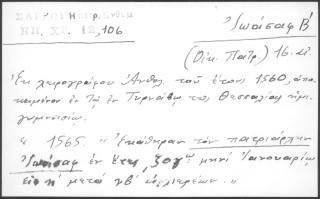 ΣΑΘΡΟΥ Ἡπειρ. Ἐνθυμ.
ΗΠ. ΧΡ. 12, 106
Ἰωάσαφ Β΄
(Οἰκ. Πατρ.) 16. αἰ.
Ἐκ χειρογράφου Ἀνθολ. τοῦ ἔτους 1560, ἀπο-
κειμένου ἐν τῷ ἐν Τυρνάβῳ τῆς Θεσσαλίας ἡμι-
γυμνασίῳ.
" 1565. " Ἐκάθηραν τὸν πατριάρχην
Ἰωάσαφ ἐν ἔτει ͵ζογ΄ʹ μηνὶ Ἰανουαρίῳ
εἰς η΄ μετὰ νβ΄ ἀρχιερέων. "